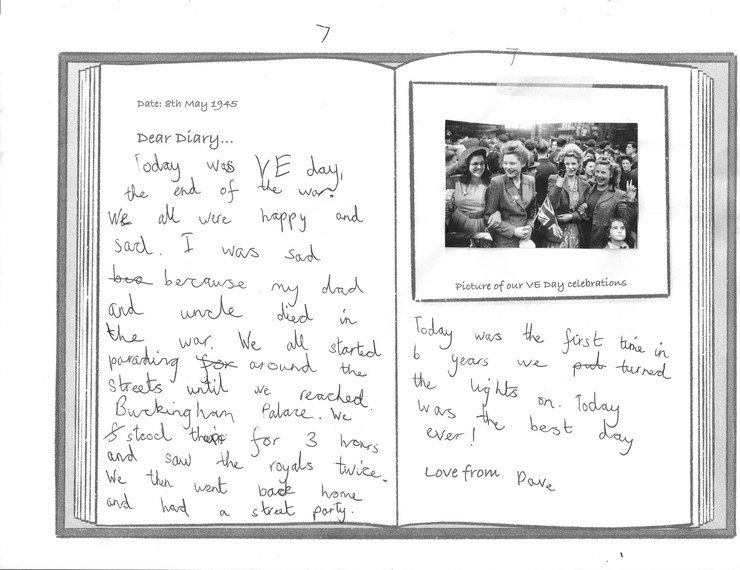 7
7
Date: 8th May 1945
Dear Diary...
Today was VE day,
the end of the war.
We all were happy and
sad. I was sad
bec because my dad
and uncle died in
the war. We all started
parading for around the
streets until we reached
Buckingham Palace. We
stood there for 3 hours
and saw the royals twice.
We then went back home
and had a street party.
Picture of our VE Day celebrations
Today was the first time in
6 years we put turned
the lights on. Today
was the best day
ever!
Love from Dave